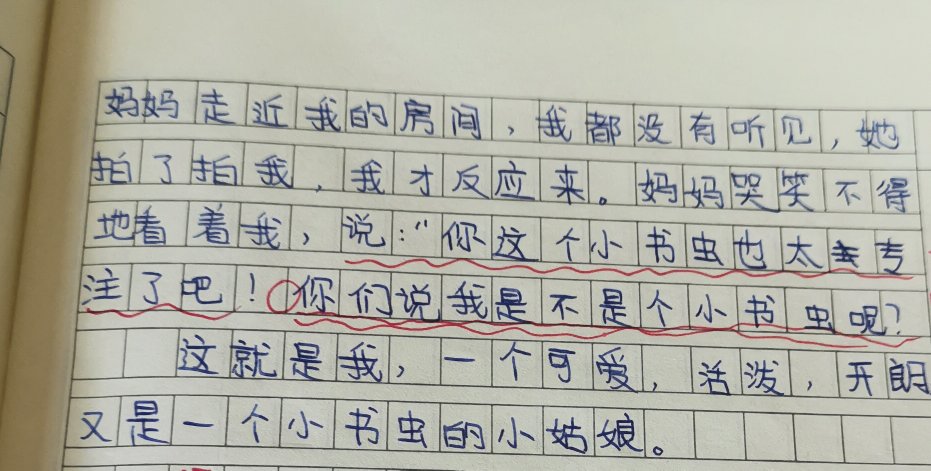 妈妈走近我的房间，我都没有听见，她
拍了拍我，我才反应来。妈妈哭笑不得
地看着我，说：“你这个小书虫也太专
注了吧！你们说我是不是个小书虫呢？
这就是我，一个可爱，活泼，开朗
又是一个小书虫的小姑娘。